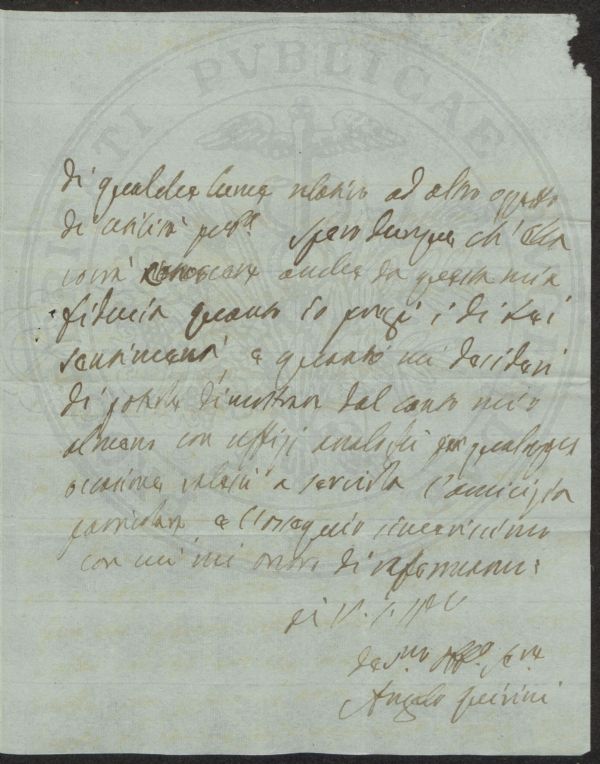 di qualche lume relativo ad altro oggetto
di utilità pub.ca Spero dunque ch'Ella
vorrà conoscere anche da questa mia
fiducia quanto io pregi i di Lei
sentimenti e quanto mi desideri
di poterle dimostrar dal canto mio
almeno con uffizj analoghi qualunque
occasione a servirla l'amicizia
particolare e l'ossequio sincerissimo
con cui mi onoro di raffermarmi
di V. S. Ill.
dev.mo obb.o ser.e
Angelo